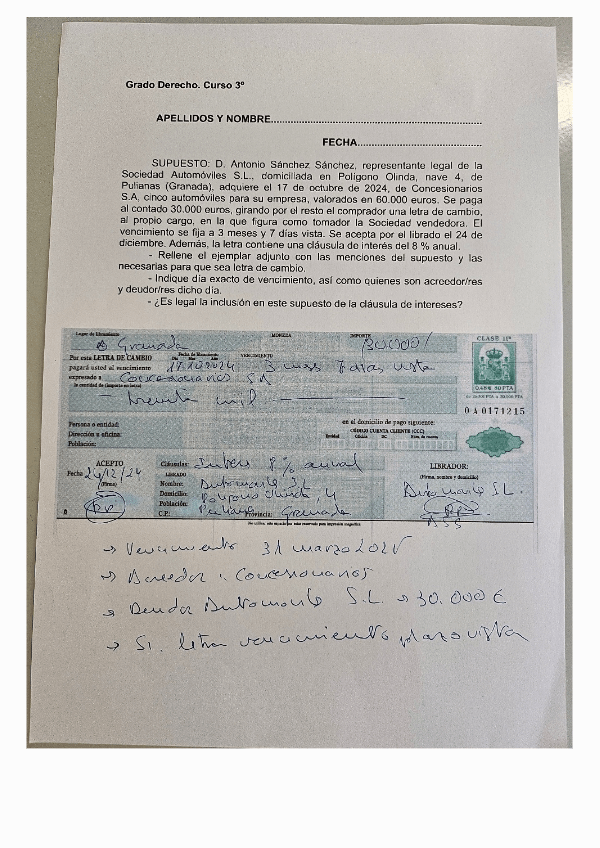 Grado Derecho. Curso 3º
APELLIDOS Y NOMBRE................................................................
FECHA......................................
SUPUESTO: D. Antonio Sánchez Sánchez, representante legal de la
Sociedad Automóviles S.L., domiciliada en Polígono Olinda, nave 4, de
Pulianas (Granada), adquiere el 17 de octubre de 2024, de Concesionarios
S.A, cinco automóviles para su empresa, valorados en 60.000 euros. Se paga
al contado 30.000 euros, girando por el resto el comprador una letra de cambio,
al propio cargo, en la que figura como tomador la Sociedad vendedora. El
vencimiento se fija a 3 meses y 7 días vista. Se acepta por el librado el 24 de
diciembre. Además, la letra contiene una cláusula de interés del 8 % anual.
- Rellene el ejemplar adjunto con las menciones del supuesto y las
necesarias para que sea letra de cambio.
- Indique día exacto de vencimiento, así como quienes son acreedor/res
y deudor/res dicho día.
- ¿Es legal la inclusión en este supuesto de la cláusula de intereses?
Lugar de libramiento MONEDA IMPORTE
Granada 30000/
CLASE 11ª
Fecha de libramiento VENCIMIENTO
Por esta LETRA DE CAMBIO 17.10.2024 3 meses 7 días vista
pagará usted al vencimiento
expresado a Concesionarios SA
Treinta mil
0,48 € 80 PTA
0 A 0171215
Persona o entidad: en el domicilio de pago siguiente:
Dirección u oficina: CÓDIGO CUENTA CLIENTE (CCC)
Población: Entidad Oficina DC Núm. de cuenta
ACEPTO Cláusulas: Interés 8% anual LIBRADOR:
Fecha 24/12/24 LIBRADO (Firma, nombre y domicilio)
(Firma) Nombre: Automovile SL
Domicilio: Polígono Olinda, 4
Población: Pulianas
C.P: Provincia: Granada
ASS
→ Vencimiento 31 marzo 2025
→ Acreedor: Concesionarios
→ Deudor Automovile S.L. → 30.000 €
→ Si. letra vencimiento plazo vista